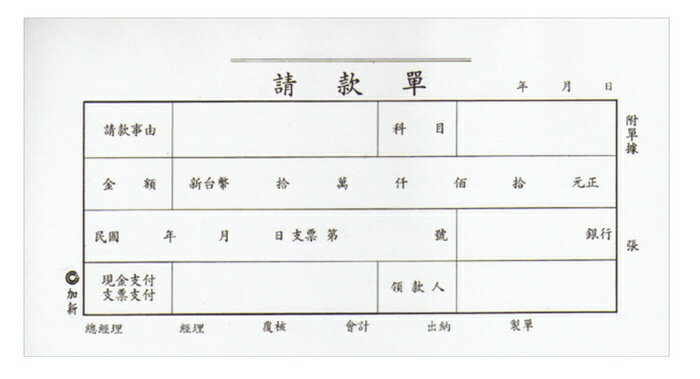 請款單
年 月 日
請款事由 科目
金額 新台幣 拾 萬 仟 佰 拾 元正
民國 年 月 日 支票第 號 銀行
現金支付 支票支付 領款人
附單據 張
加新
總經理 經理 覆核 會計 出納 製單